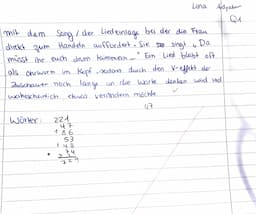 Lena
Q1
mit dem Song / der Liedeinlage bei der die Frau
direkt zum Handeln auffordert. Sie singt „Da
müsst ihr euch drum kümmern". Ein Lied bleibt oft
als Ohrwurm im Kopf, sodass durch den V-effekt der
Zuschauer noch lange an die Worte denken wird und
wahrscheinlich etwas verändern möchte.
47
Wörter: 221
47
53